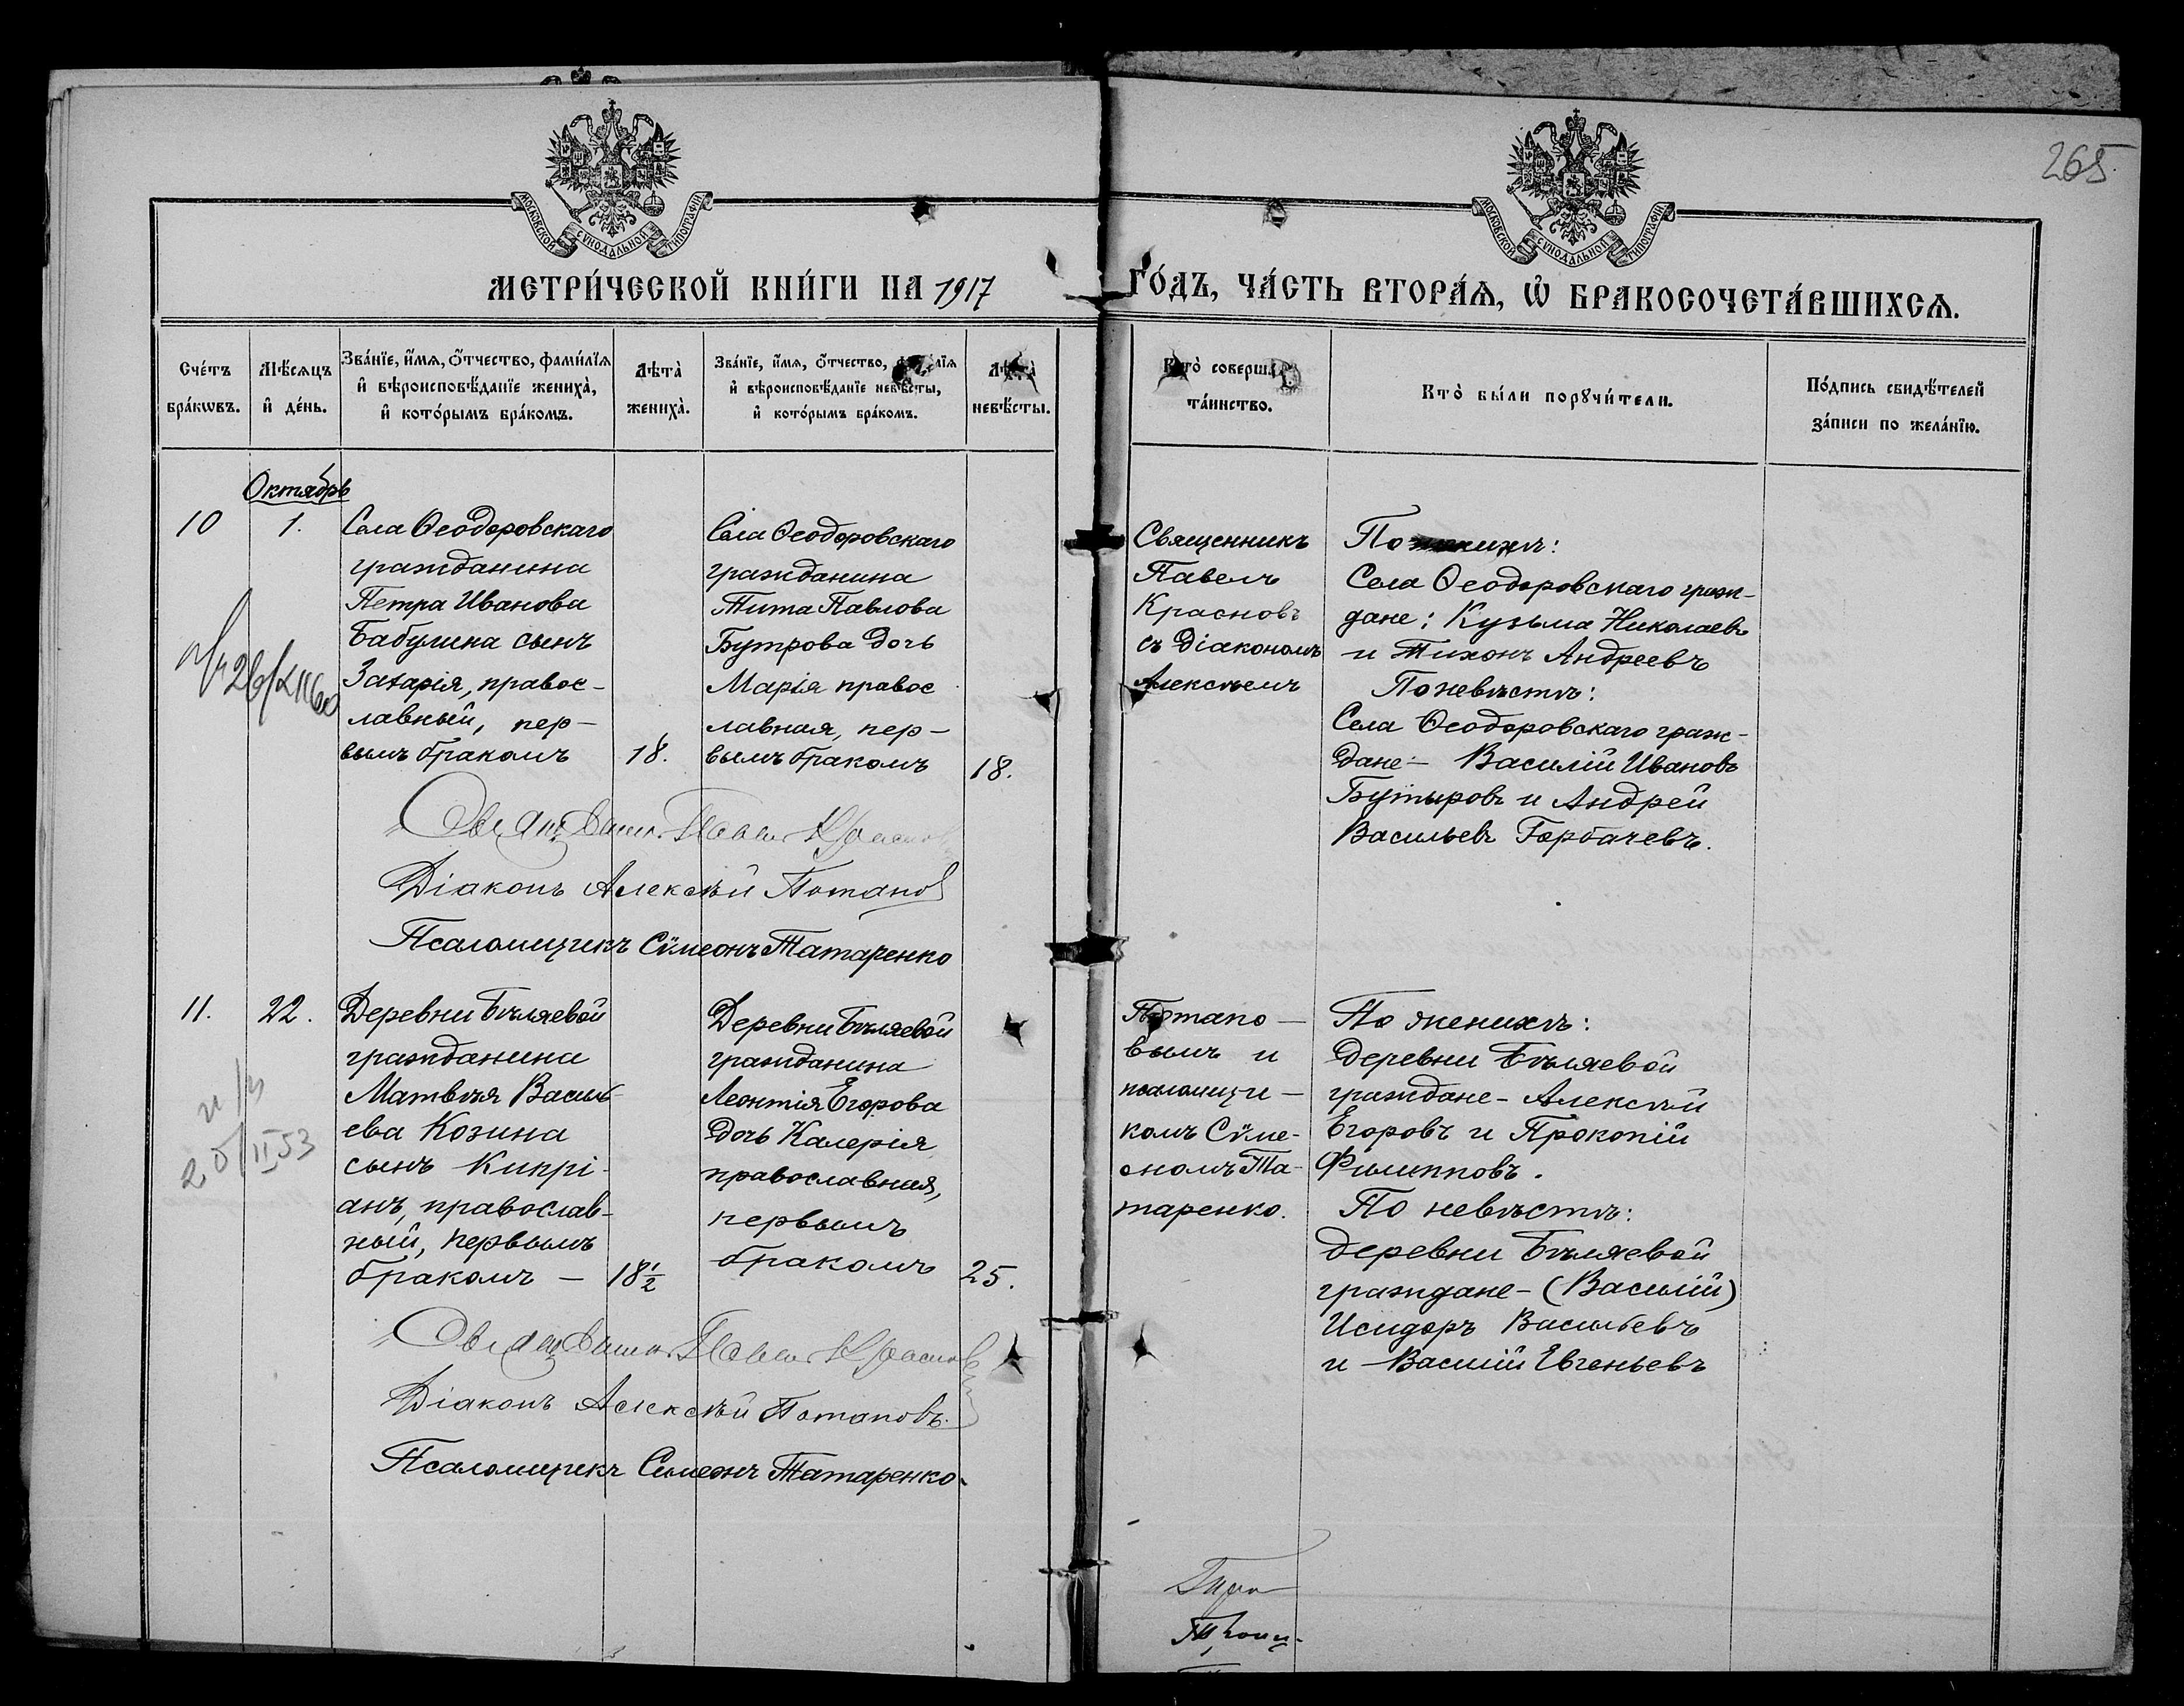 265.
МОСКОВСКОЙ СѴНОДАЛЬНОЙ ТИПОГРАФІИ
МОСКОВСКОЙ СѴНОДАЛЬНОЙ ТИПОГРАФІИ
МЕТРИ́ЧЕСКОЙ КНИ́ГИ НА 1917
ГО́ДЪ, ЧА́СТЬ ВТОРА́Я, Ѡ҆ БРАКОСОЧЕТА́ВШИХСѦ.
Сче́тъ
бра́кѡвъ.
Мѣ́сяцъ
и҆ де́нь.
Зва́нїе, и҆́мѧ, ѻ҆́тчество, фами́лїѧ
и҆ вѣроисповѣ́данїе жениха̀,
и҆ кото́рымъ бра́комъ.
Лѣта̀
жениха̀.
Зва́нїе, и҆́мѧ, ѻ҆́тчество,
и҆ вѣроисповѣ́данїе невѣ́сты,
и҆ кото́рымъ бра́комъ.
невѣ́сты.
Кто̀ соверш.
та́инство.
Кто̀ бы́ли порꙋчи́тели.
По́дпись свидѣ́телей
за́писи по жела́нїю.
Октябрь
10
1.
Села Ѳеодоровскаго
гражданина
Петра Иванова
Бабулина сынъ
Захарія, правос-
лавный, пер-
вымъ бракомъ
18.
Села Ѳеодоровскаго
гражданина
Тита Павлова
Бутрова дочь
Марія правос
лавная, пер-
вымъ бракомъ
18.
Священникъ
Павелъ
Красновъ
съ Діакономъ
Алексѣемъ
По женихѣ:
Села Ѳеодоровскаго граж-
дане: Кузьма Николаевъ
и Тихонъ Андреевъ
По невѣстѣ:
Села Ѳеодоровскаго граж-
дане:- Василій Ивановъ
Бутыровъ и Андрей
Васильевъ Горбачевъ.
Священникъ Павелъ Красновъ
Діаконъ Алексѣй Потапов
Псаломщикъ Сѵмеонъ Татаренко
11.
22.
Деревни Бѣляевой
гражданина
Матвѣя Василь-
ева Козина
сынъ Кипрі-
анъ, православ-
ный, первымъ
бракомъ —
18½
Деревни Бѣляевой
гражданина
Леонтія Егорова
дочь Калерія
православная,
первымъ
бракомъ
25.
Потапо-
вымъ и
псаломщи-
комъ Сѵме-
ономъ Та-
таренко.
По женихѣ:
деревни Бѣляевой
граждане - Алексѣй
Егоровъ и Прокопій
Филипповъ.
По невѣстѣ:
деревни Бѣляевой
граждане - (Василій)
Исидоръ Васильевъ
и Василій Евгеньевъ
20/II 53
Священникъ Павелъ Красновъ
Діаконъ Алексѣй Потаповъ.
Псаломщикъ Симеонъ Татаренко.